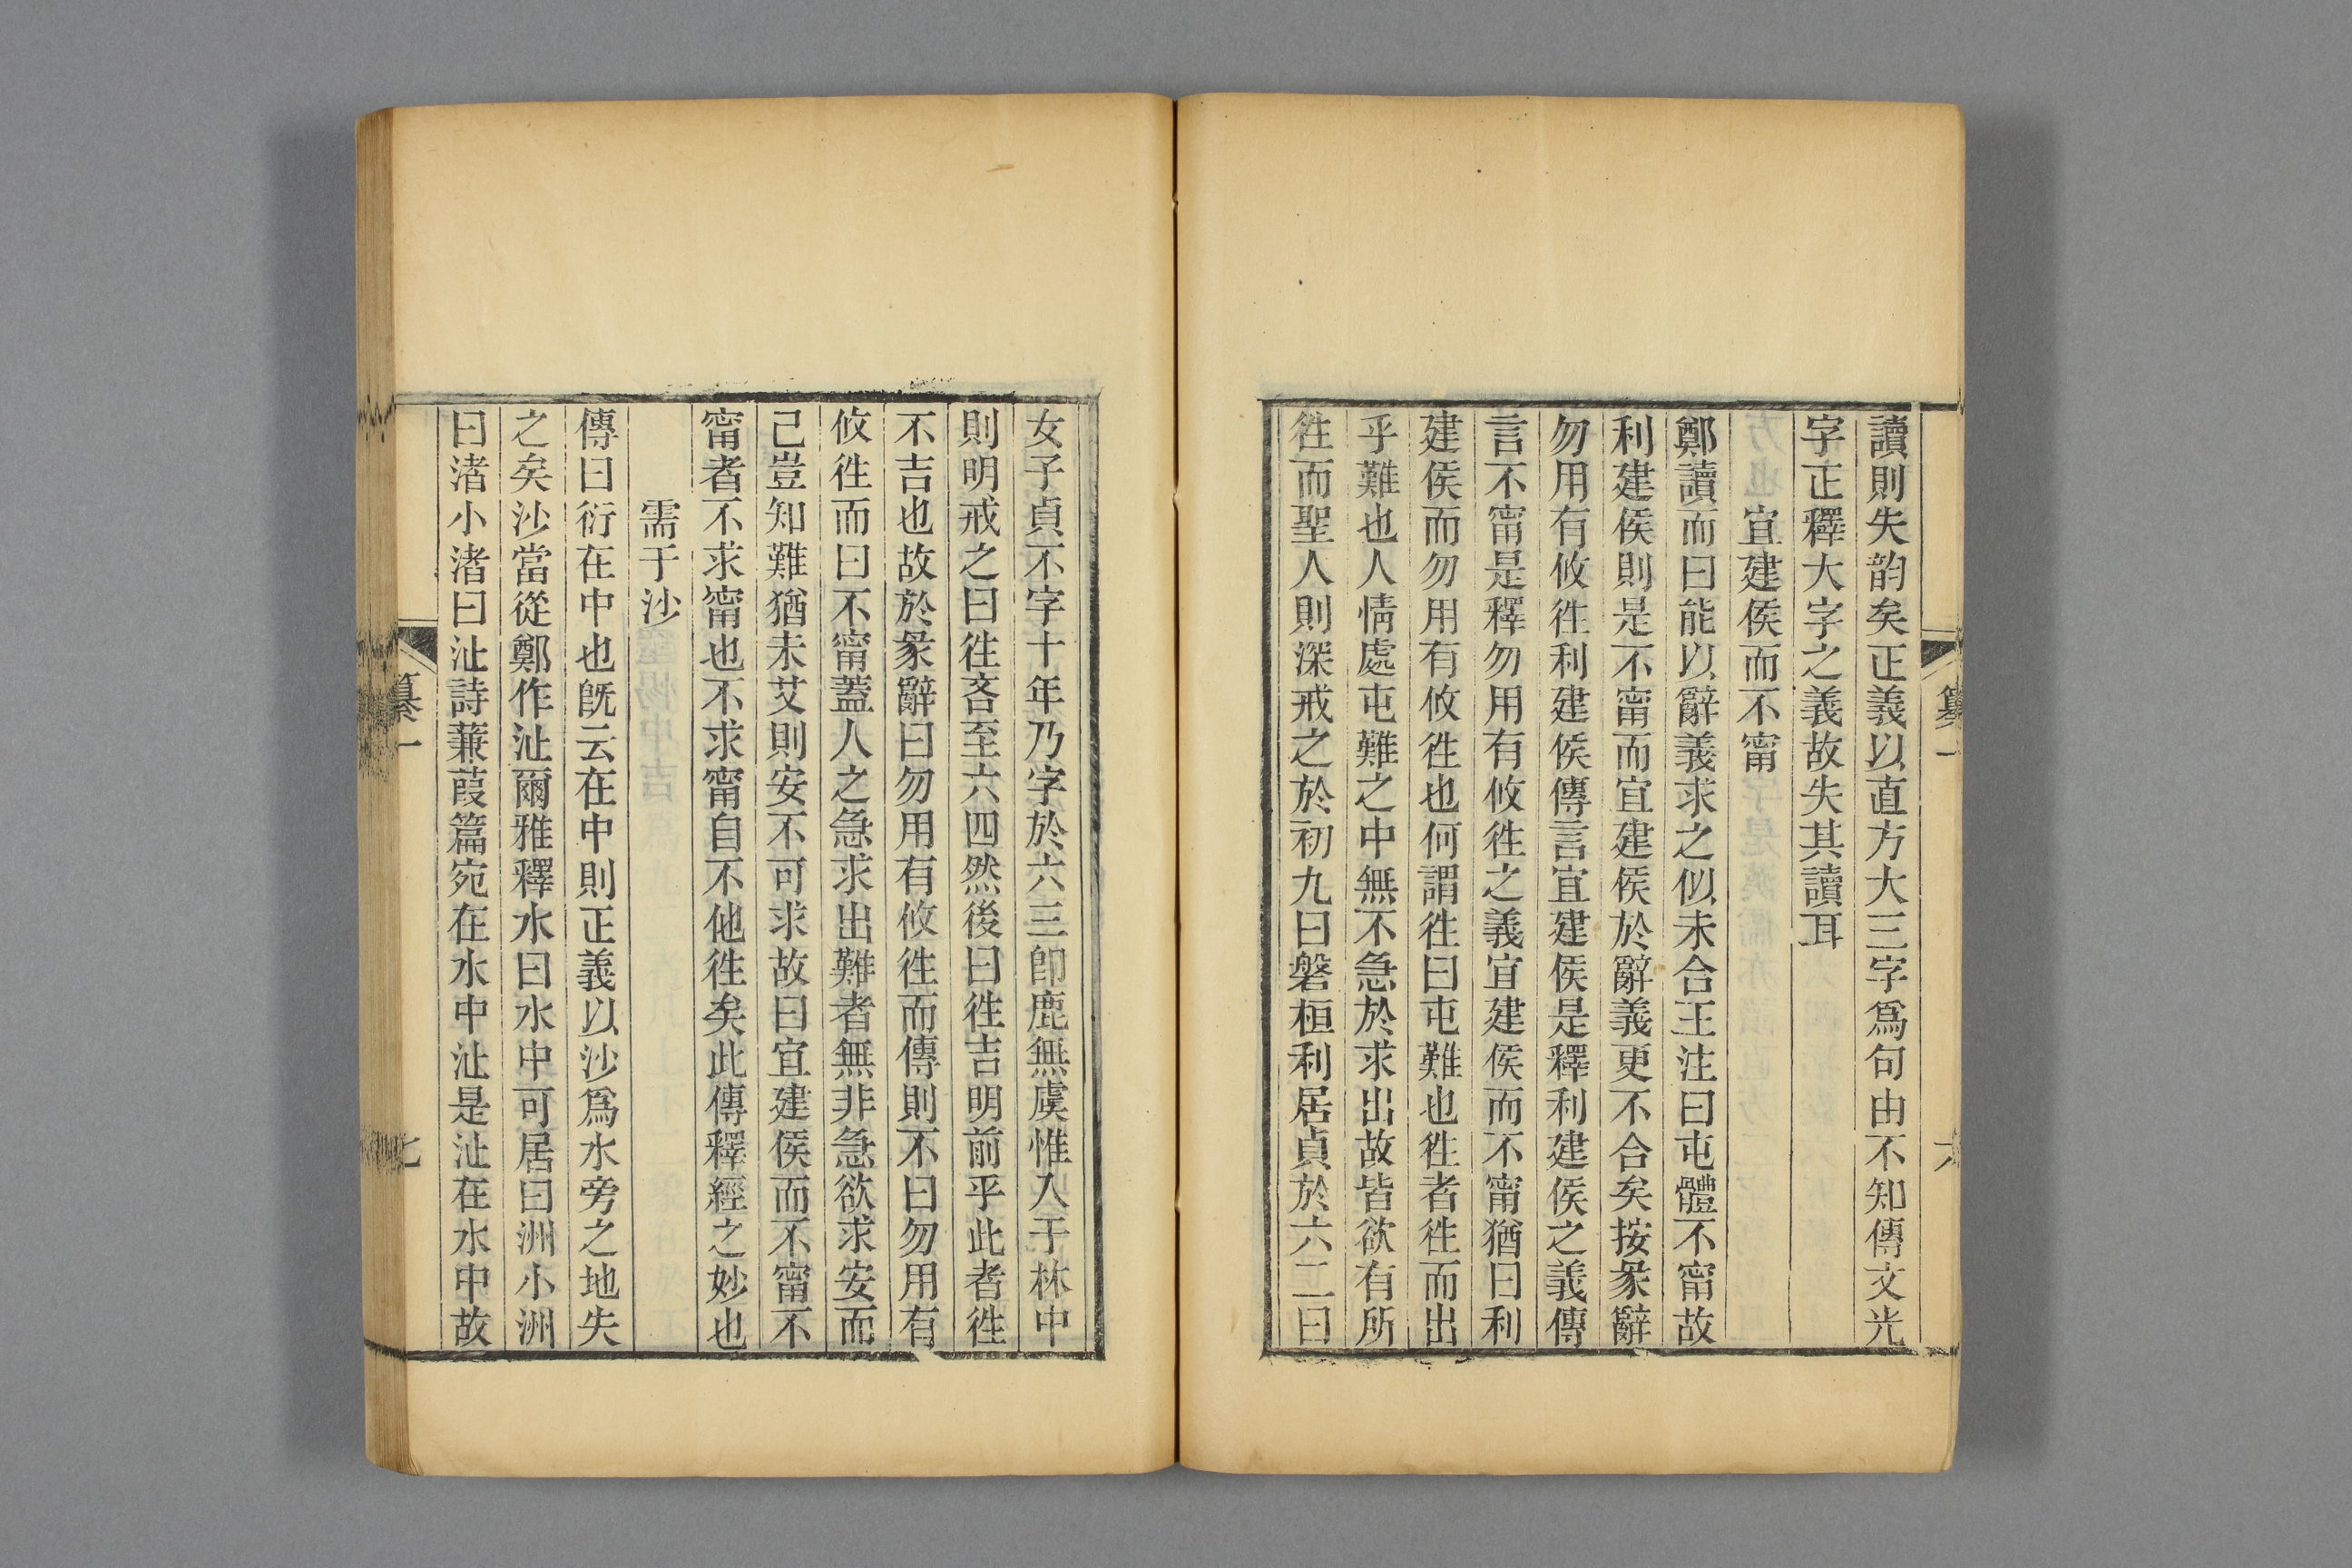 讀則失韵矣正義以直方大三字爲句由不知傳文光
字正釋大字之義故失其讀耳
宜建侯而不甯
鄭讀而曰能以辭義求之似未合王注曰屯體不甯故
利建侯則是不甯而宜建侯於辭義更不合矣按彖辭
勿用有攸徃利建侯傳言宜建侯是釋利建侯之義傳
言不甯是釋勿用有攸徃之義宜建侯而不甯猶曰利
建侯而勿用有攸徃也何謂徃曰屯難也徃者徃而出
乎難也人情處屯難之中無不急於求出故皆欲有所
徃而聖人則深戒之於初九曰磐桓利居貞於六二曰
女子貞不字十年乃字於六三卽鹿無虞惟入于林中
則明戒之曰徃吝至六四然後曰徃吉明前乎此者徃
不吉也故於彖辭曰勿用有攸徃而傳則不曰勿用有
攸徃而曰不甯蓋人之急求出難者無非急欲求安而
己豈知難猶未艾則安不可求故曰宜建侯而不甯不
甯者不求甯也不求甯自不他徃矣此傳釋經之妙也
需于沙
傳曰衍在中也旣云在中則正義以沙爲水旁之地失
之矣沙當從鄭作沚爾雅釋水曰水中可居曰洲小洲
曰渚小渚曰沚詩蒹葭篇宛在水中沚是沚在水中故
纂一
六
纂一
七